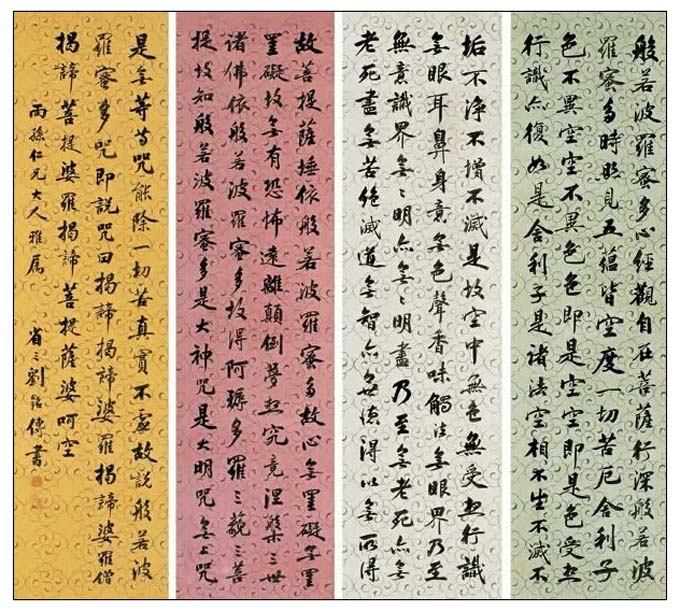 般若波羅蜜多心經觀自在菩薩行深般若波
羅蜜多時照見五蘊皆空度一切苦厄舍利子
色不異空空不異色色即是空空即是色受想
行識亦復如是舍利子是諸法空相不生不滅不
垢不淨不增不滅是故空中無色無受想行識
無眼耳鼻身意無色聲香味觸法無眼界乃至
無意識界無々明亦無々明盡乃至無老死亦無
老死盡無苦絶滅道無智亦無德得以無所得
故菩提薩埵依般若波羅蜜多故心無罣礙無罣
罣礙故無有恐怖遠離顛倒夢想究竟涅槃三世
諸佛依般若波羅蜜多故得阿耨多羅三藐三菩
提故知般若波羅蜜多是大神咒是大明咒無上咒
是無等等咒能除一切苦真實不虛故說般若波
羅蜜多咒即說咒曰揭諦揭諦婆羅揭諦婆羅僧
揭諦菩提婆羅揭諦菩提薩婆呵空
雨孫仁兄大人雅屬
省三劉銘傳書